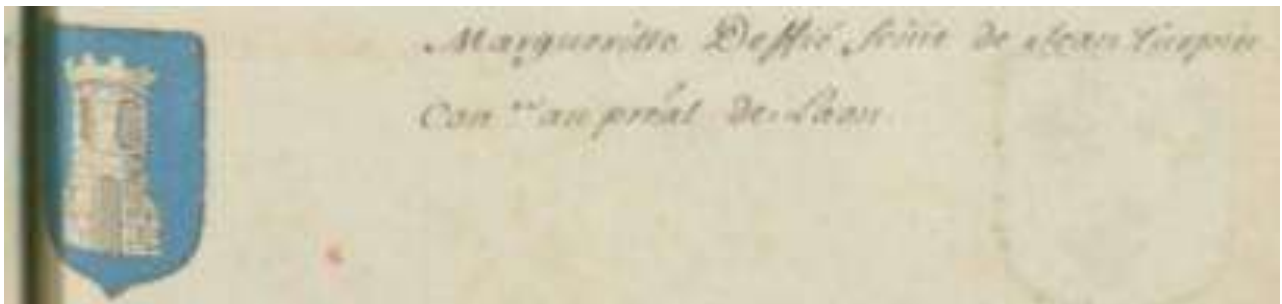 Margueritte Deffié femme de Jean Turpin
Con.er au préal de Laon